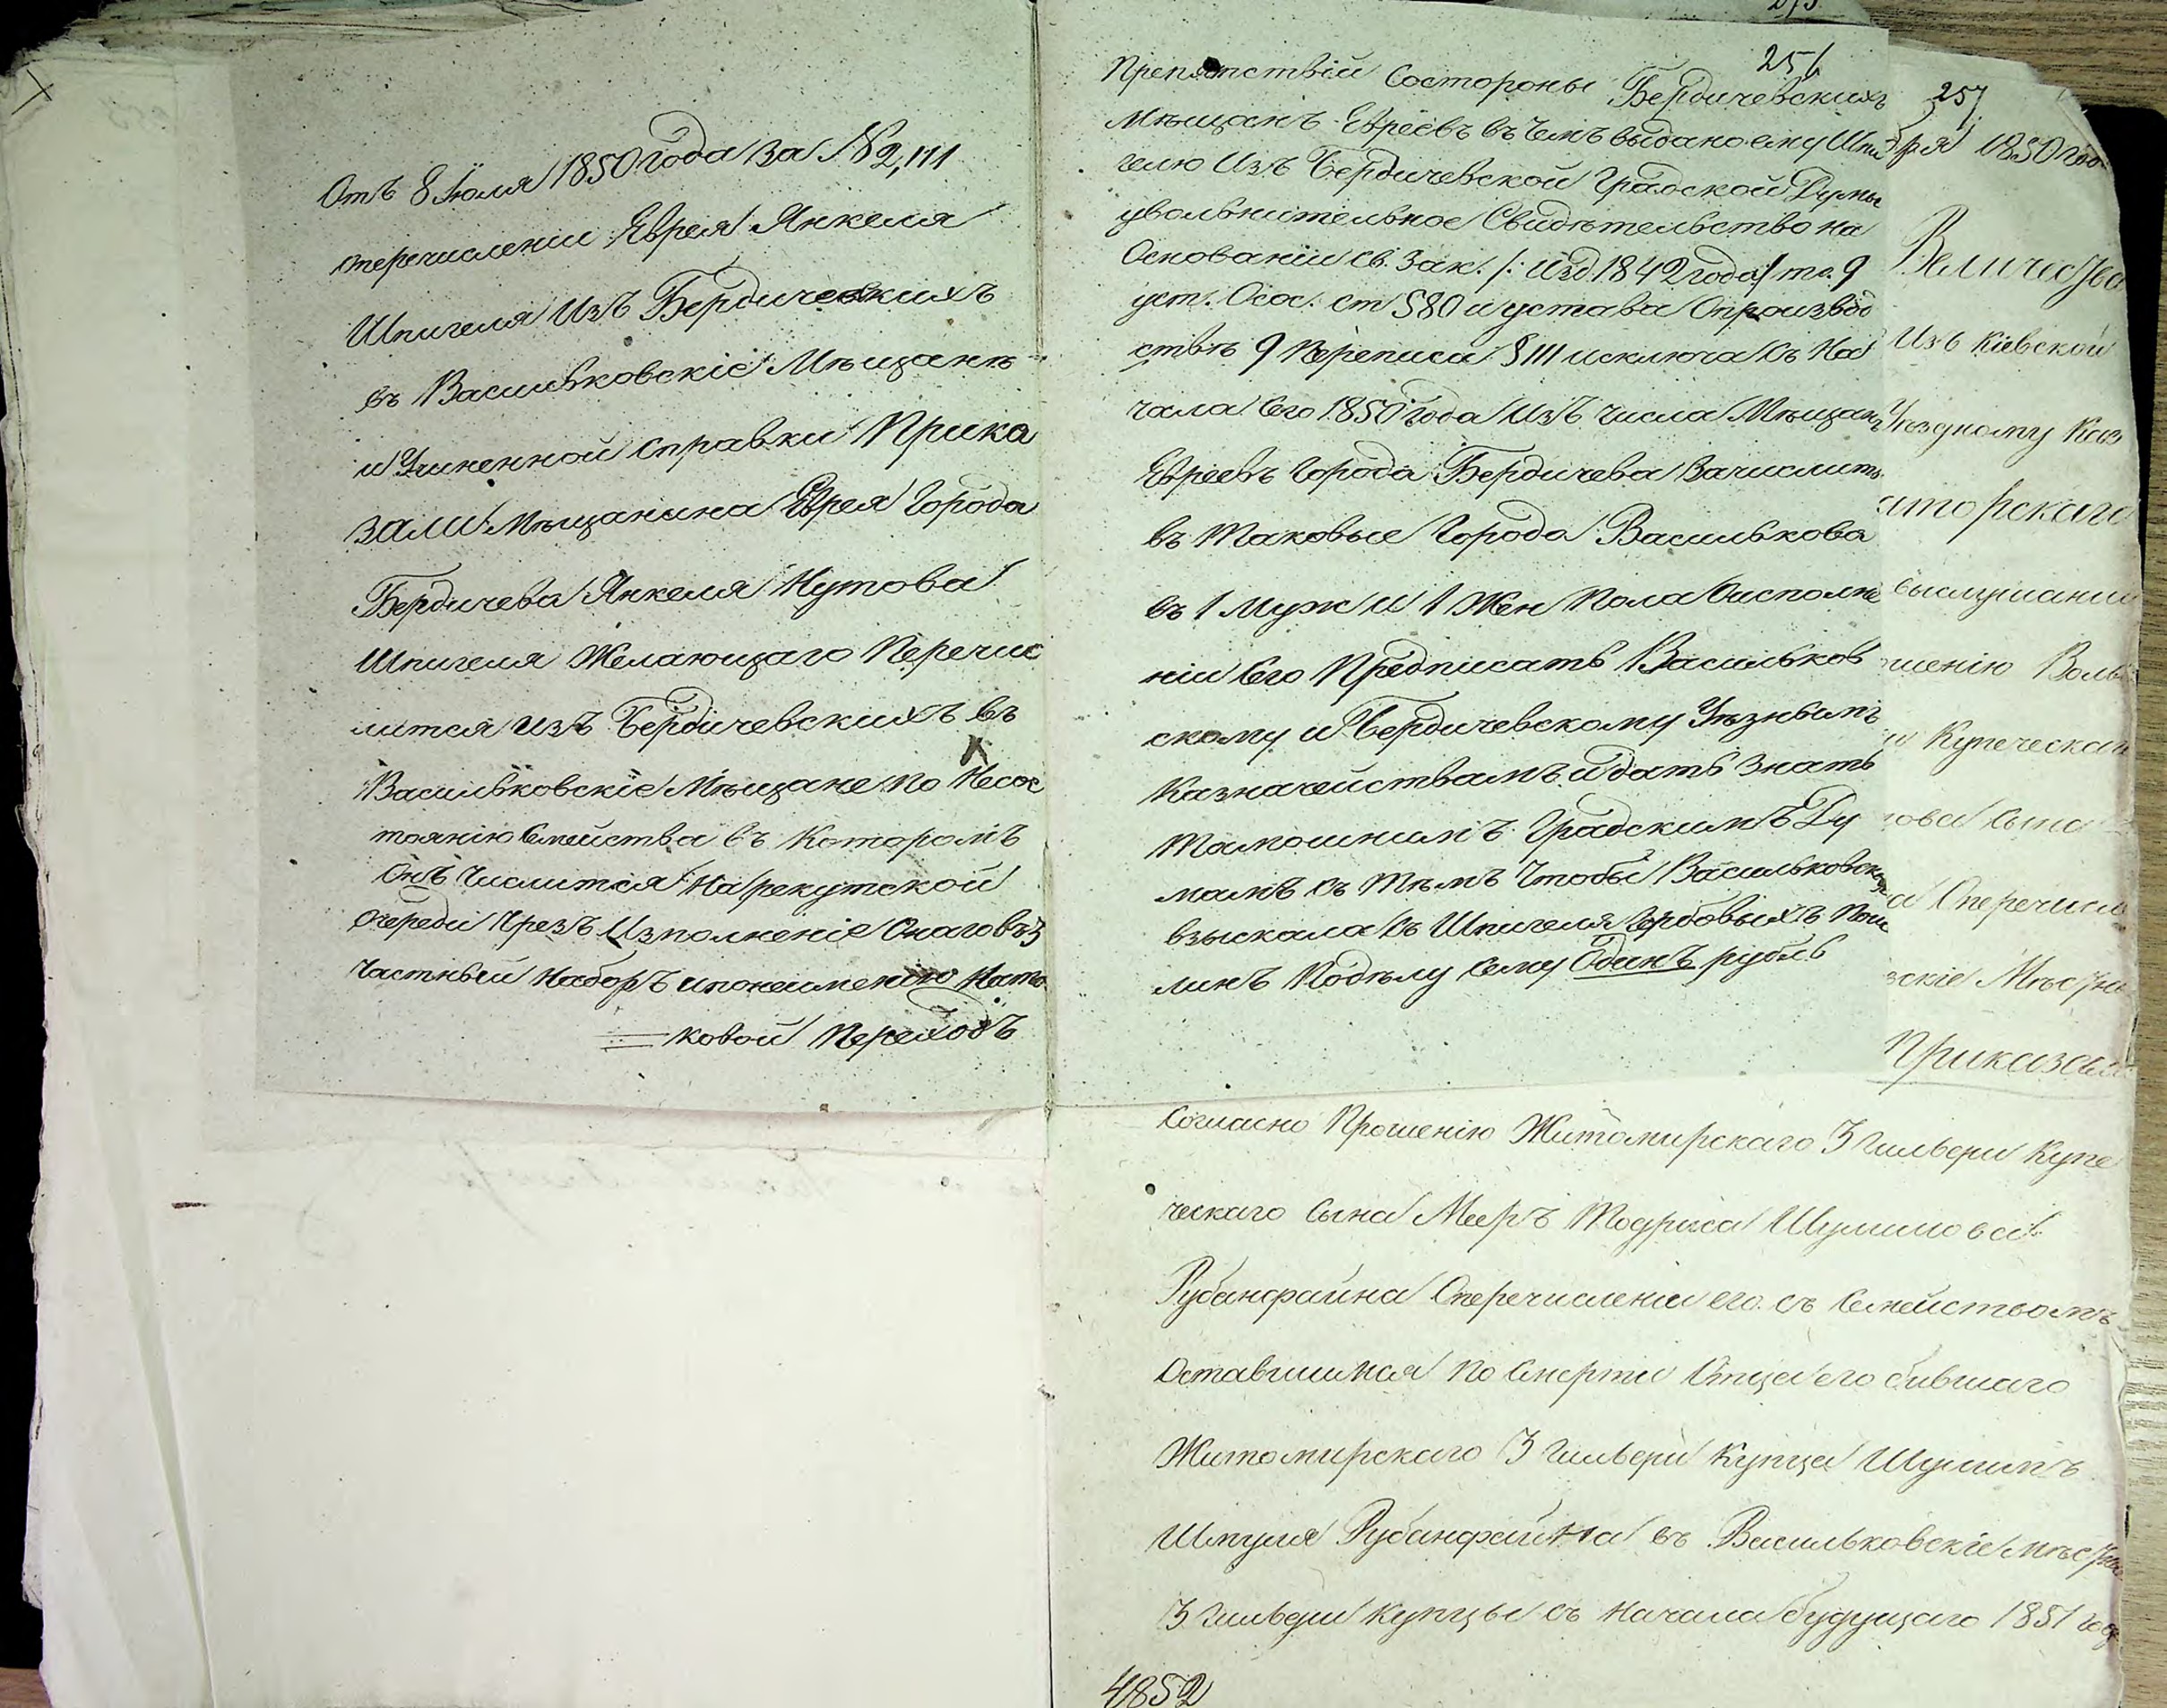 Отъ 8 Июля 1850 года за № 2,111
Оперечислении Еврея Янкеля
Шпигеля Изъ Бердичевскихъ
въ Васильковскіе Мѣщане
и Учиненной справки Прика
зали: Мѣщанина Еврея Города
Бердичева Янкеля Нутова
Шпигеля Желающаго Перечис
лится изъ Бердичевскихъ въ
Васильковскіе Мѣщане по Несос
тоянію Семейства въ Которомъ
Онъ Числится На рекутской
очереди Чрезъ Изполненіе Онаго въ 3
частный наборъ и понеименію Нато
ковой Переходъ
251
Препятствій Состороны Бердичевскихъ
Мѣщанъ Евреевъ въ Чемъ выдано ему Шпи
гелю Изъ Бердичевской Градской Думы
увольнительное Свидѣтельство на
Основаніи Св. Зак. /: Изд. 1842 года :/ то. 9
уст. Осос. ст 580 и устава Опроизвод
ствѣ 9 Переписи § 111 исключа съ На
чала Сего 1850 Года Изъ числа Мѣщанъ
Евреевъ Города Бердичева Зачислить
въ Таковые Города Василькова
въ 1 Муж и 1 Жен Пола Оисполне
ніи Сего Предписать Васильков
скому и Бердичевскому Уѣзнымъ
Казначействамъ и дать Знать
Тамошнимъ Градскимъ Ду
мамъ съ Тѣмъ Чтобы Васильковская
взыскала съ Шпигеля Гербовыхъ Пош
линъ Подѣлу Сему Одинъ рубль
257
бря 1850 го
Величества
Изъ Кіевской
Уѣздному Каз
аторскаго
выслушании
шенію Волы
и Купеческаго
ова Сына
а Оперечисле
вскіе Мѣстн
Приказали
Согласно Прошенію Житомирскаго 3 Гильдіи Купе
ческаго Сына Мееръ Тодриса Шулимова
Рубанфайна Оперечисленіи его съ Семействомъ
Оставшимся По Смерти Отца его бившаго
Житомирскаго 3 Гильдіи Купца Шулимъ
Шмуля Рубанфайна въ Васильковскіе Мѣстны
3 Гильдіи Купцы съ Начала будущаго 1851 год
4852